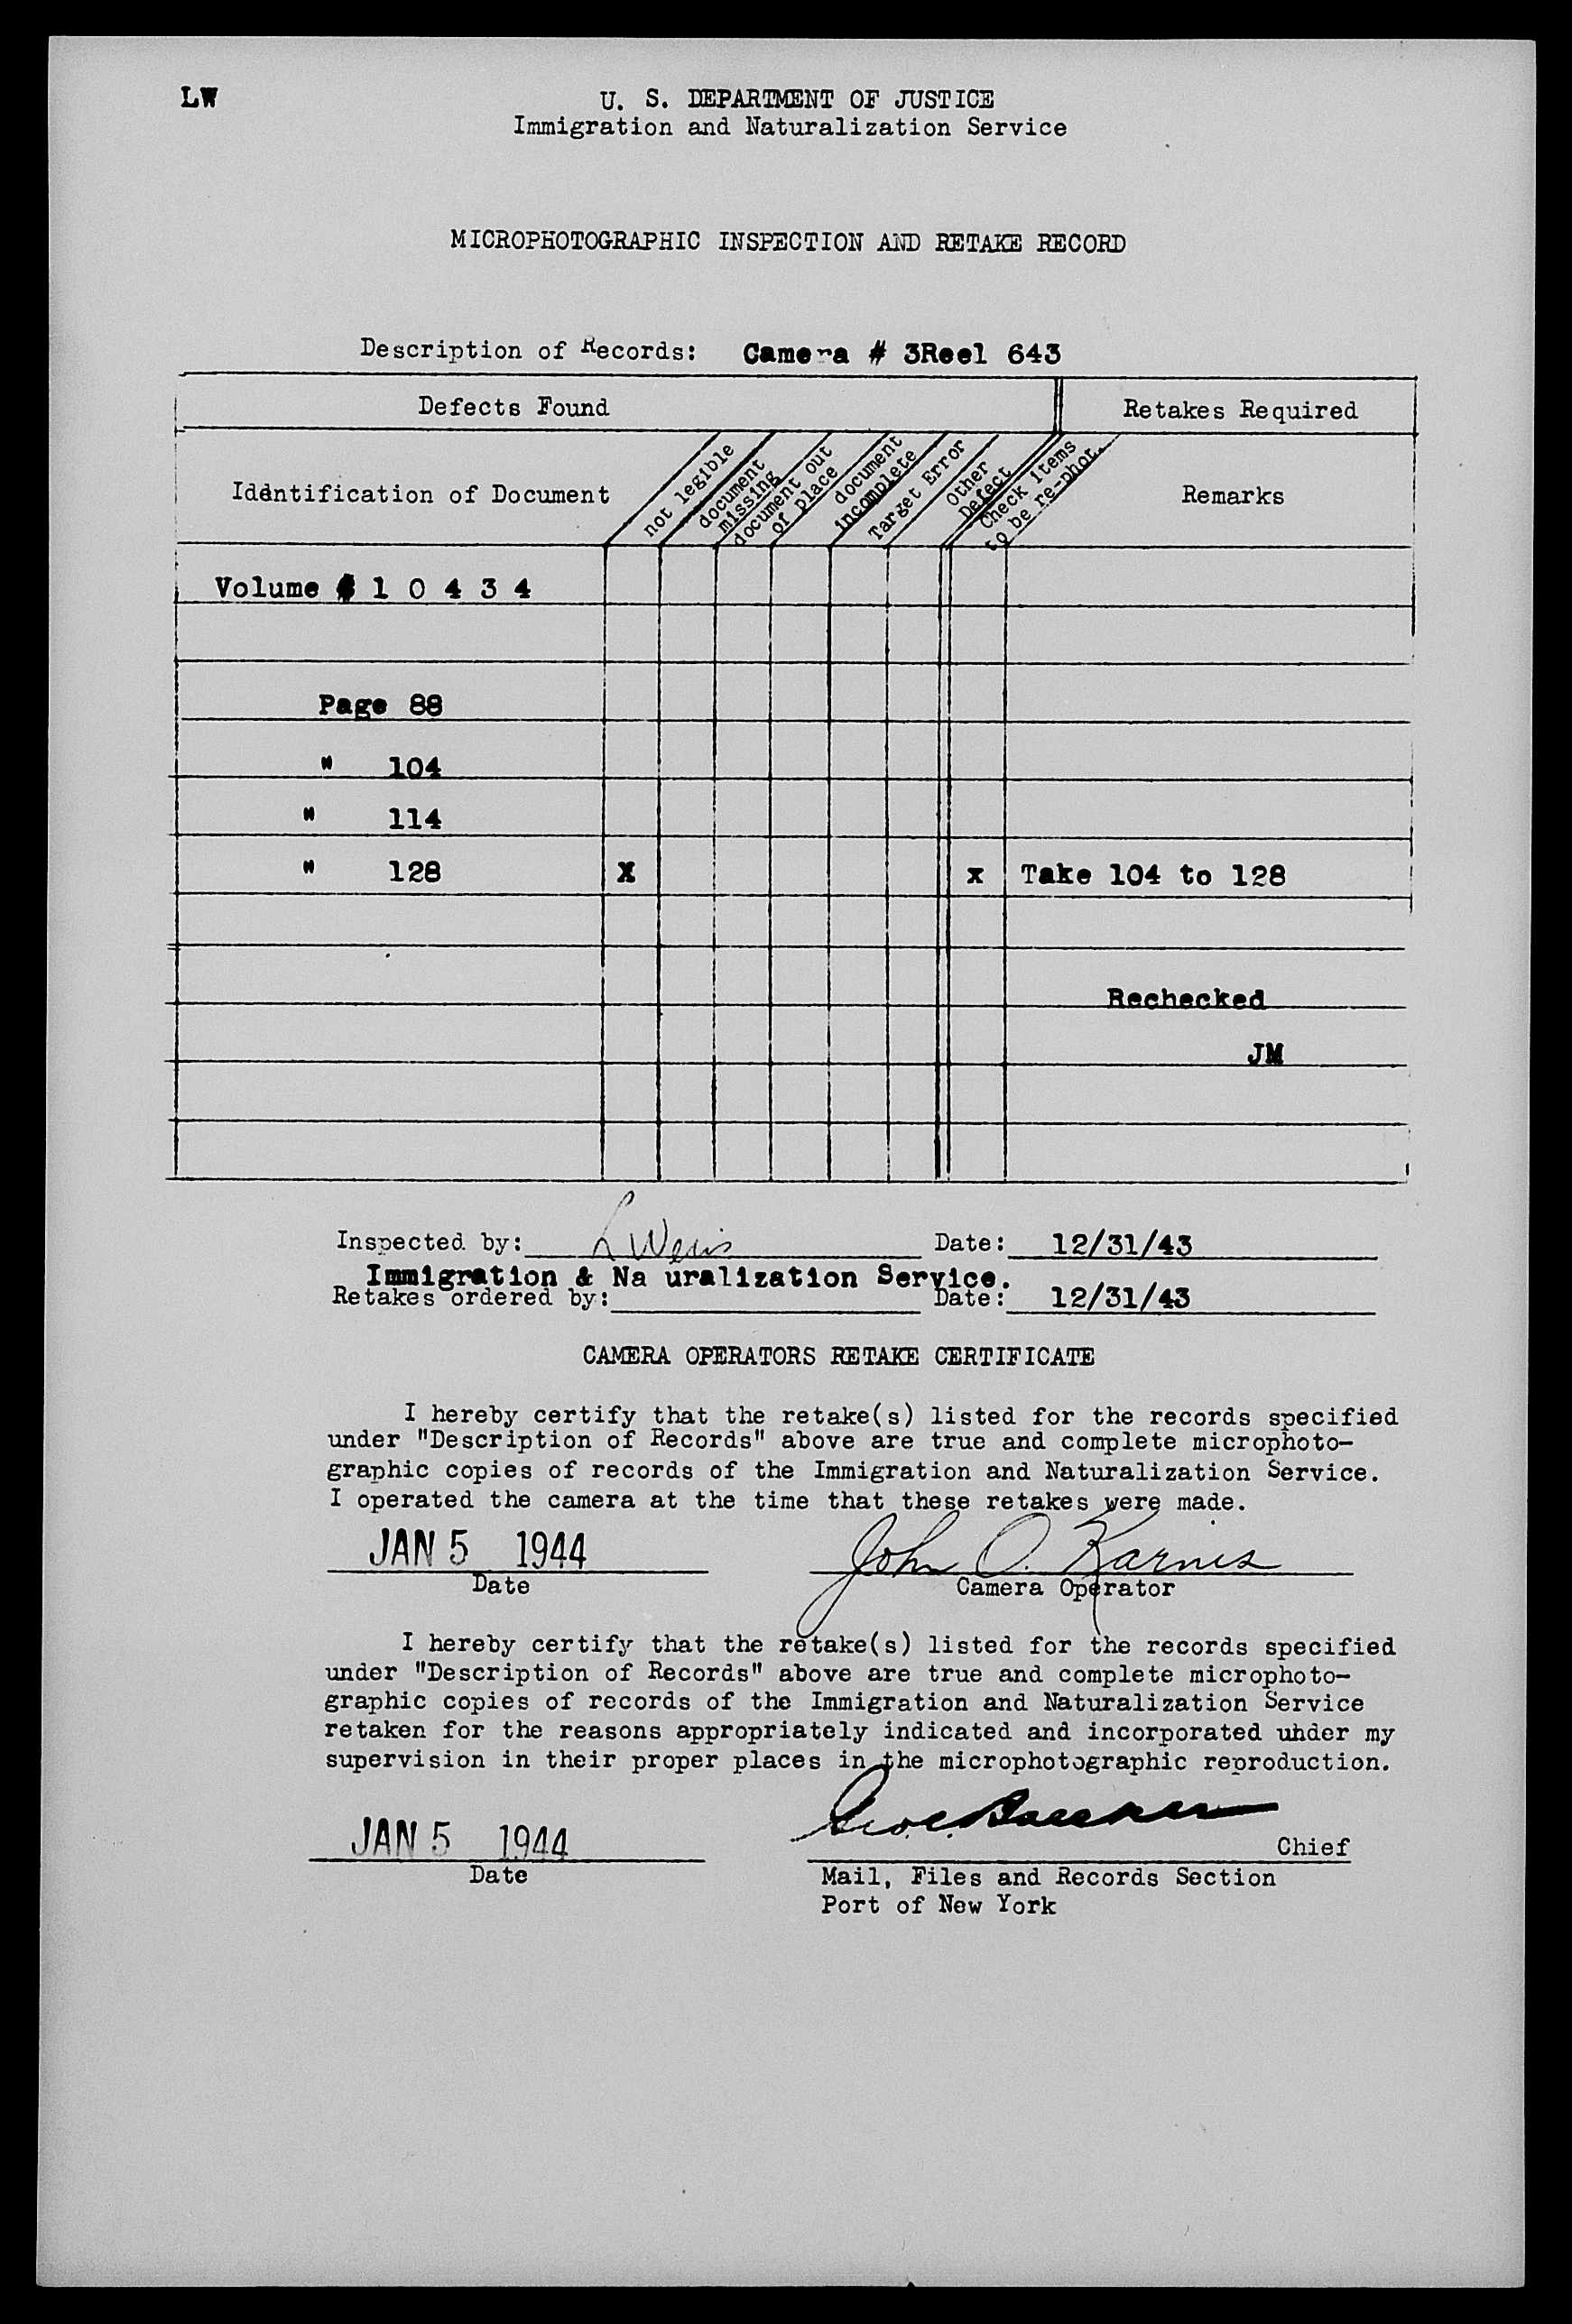 LW
U. S. DEPARTMENT OF JUSTICE
Immigration and Naturalization Service
MICROPHOTOGRAPHIC INSPECTION AND RETAKE RECORD
Description of Records: Camera # 3Reel 643
Defects Found Retakes Required
Identification of Document
not legible
document missing
document out of place
document incomplete
Target Error
Other Defect
Check items to be re-phot.
Remarks
Volume # 1 0 4 3 4
Page 88
" 104
" 114
" 128 X x Take 104 to 128
Rechecked
JM
Inspected by: L Date: 12/31/43
Immigration & Na uralization Service.
Retakes ordered by: Date: 12/31/43
CAMERA OPERATORS RETAKE CERTIFICATE
I hereby certify that the retake(s) listed for the records specified
under "Description of Records" above are true and complete microphoto-
graphic copies of records of the Immigration and Naturalization Service.
I operated the camera at the time that these retakes were made.
JAN 5 1944 John O. Karnis
Date Camera Operator
I hereby certify that the retake(s) listed for the records specified
under "Description of Records" above are true and complete microphoto-
graphic copies of records of the Immigration and Naturalization Service
retaken for the reasons appropriately indicated and incorporated under my
supervision in their proper places in the microphotographic reproduction.
JAN 5 1944 Chief
Date Mail, Files and Records Section
Port of New York